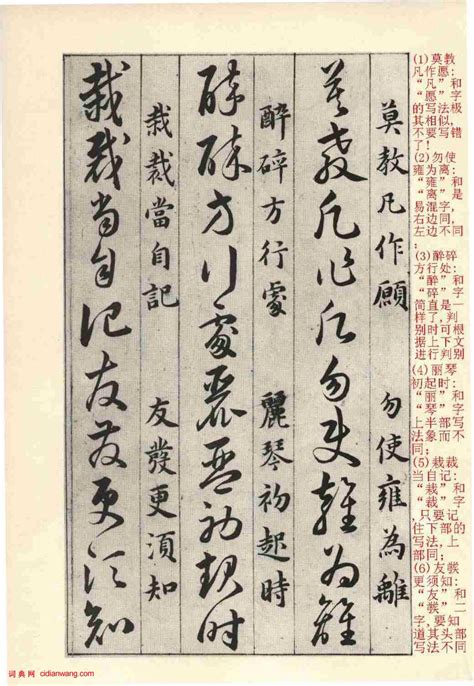 (1)莫教
凡作愿:
“凡”和
“愿”字
的写法极
其相似,
不要写错
了!
(2)勿使
雍为离:
“雍”和
“离”是
易混字,
右边同,
左边不同
;
(3)醉碎
方行处:
“醉”和
“碎”字
简直是一
样了,判
别时可根
据上下文
进行判别
(4)丽琴
初起时:
“丽”和
“琴”字
上半部写
法象而不
同;
(5)栽裁
当自记:
“栽”和
“裁”字
,只要记
住下部的
写法,上
部同;
(6)友彂
更须知:
“友”和
“彂”二
字,要知
道其头部
写法不同
莫教凡作願 勿使雍為離
莫教凡作願勿使雍為離
醉碎方行處 麗琴初起時
醉碎方行處麗琴初起時
栽裁當自記 友發更須知
栽裁當自記友發更須知
词典网 cidianwang.com